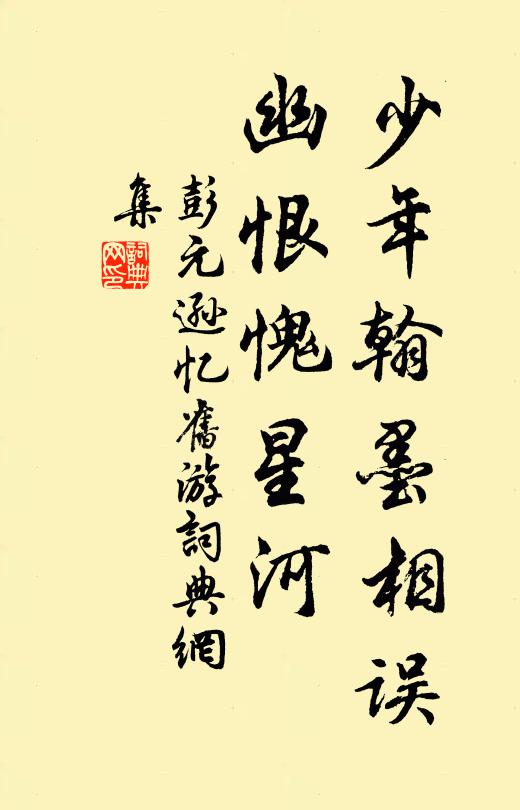 少年翰墨相误
幽恨愧星河
彭元逊忆舊游詞典網
集
詞典網印